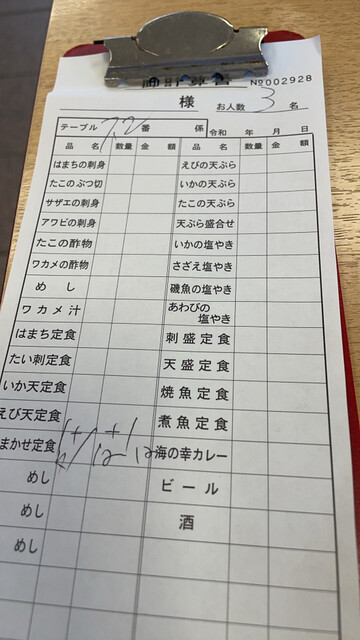 御計算書 №002928
様 お人数 3 名
テーブル 72 番 係 令和 年 月 日
品 名 数量 金 額 品 名 数量 金 額
はまちの刺身 えびの天ぷら
たこのぶつ切 いかの天ぷら
サザエの刺身 たこの天ぷら
アワビの刺身 天ぷら盛合せ
たこの酢物 いかの塩やき
ワカメの酢物 さざえ塩やき
めし 磯魚の塩やき
ワカメ汁 あわびの塩やき
はまち定食 刺盛定食
たい刺定食 天盛定食
いか天定食 焼魚定食
えび天定食 煮魚定食
まかせ定食 海の幸カレー
めし ビール
めし 酒
めし